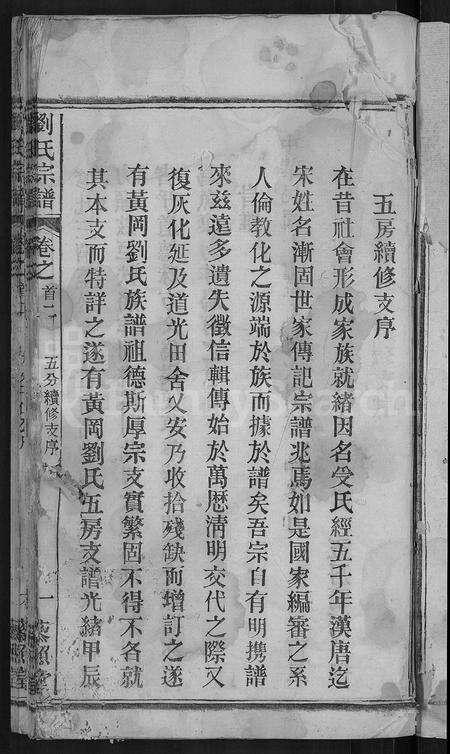 五房續修支序
在昔社會形成家族就緒因名受氏經五千年漢唐迄
宋姓名漸固世家傳記宗譜兆焉如是國家編審之系
人倫教化之源端於族而據於譜矣吾宗自有明携譜
來茲遠多遺失徵信輯傳始於萬歷清明交代之際又
復灰化延及道光田舍乂安乃收拾殘缺而增訂之遂
有黃岡劉氏族譜祖德斯厚宗支實繁固不得不各就
其本支而特詳之遂有黃岡劉氏五房支譜光緒甲辰
劉氏宗譜
卷之首一
五分續修支序
一
照堂